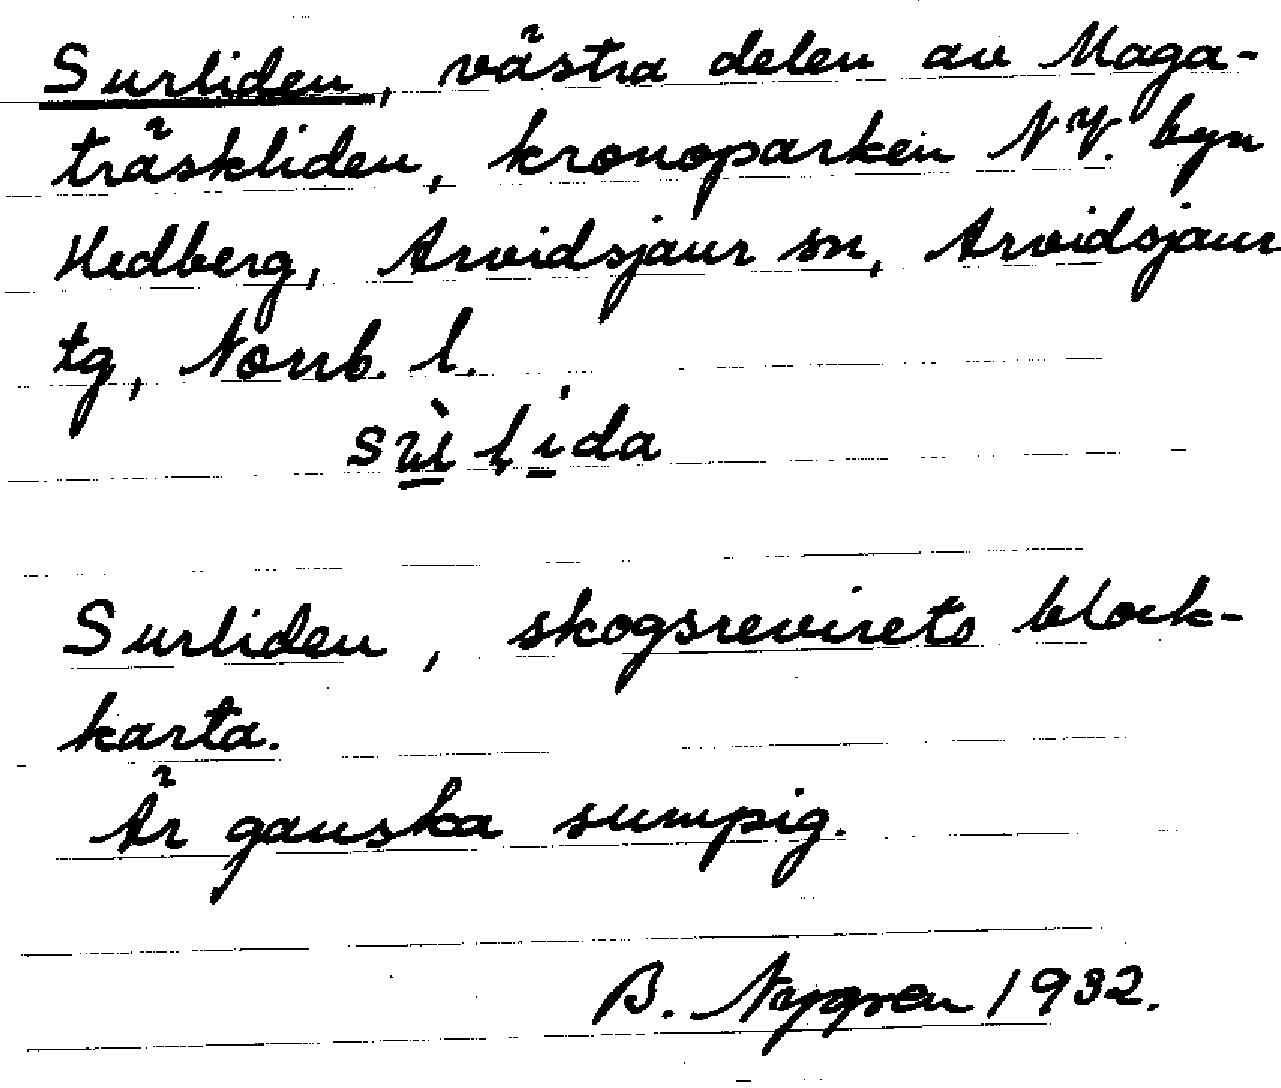 Surliden, västra delen av Maga-
träskliden, kronoparken NV. byn
Hedberg, Arvidsjaur sn, Arvidsjaur
tg, Norrb. l.
Surliden, skogsrevirets block-
karta.
Är ganska sumpig.
B. Nygren 1932.